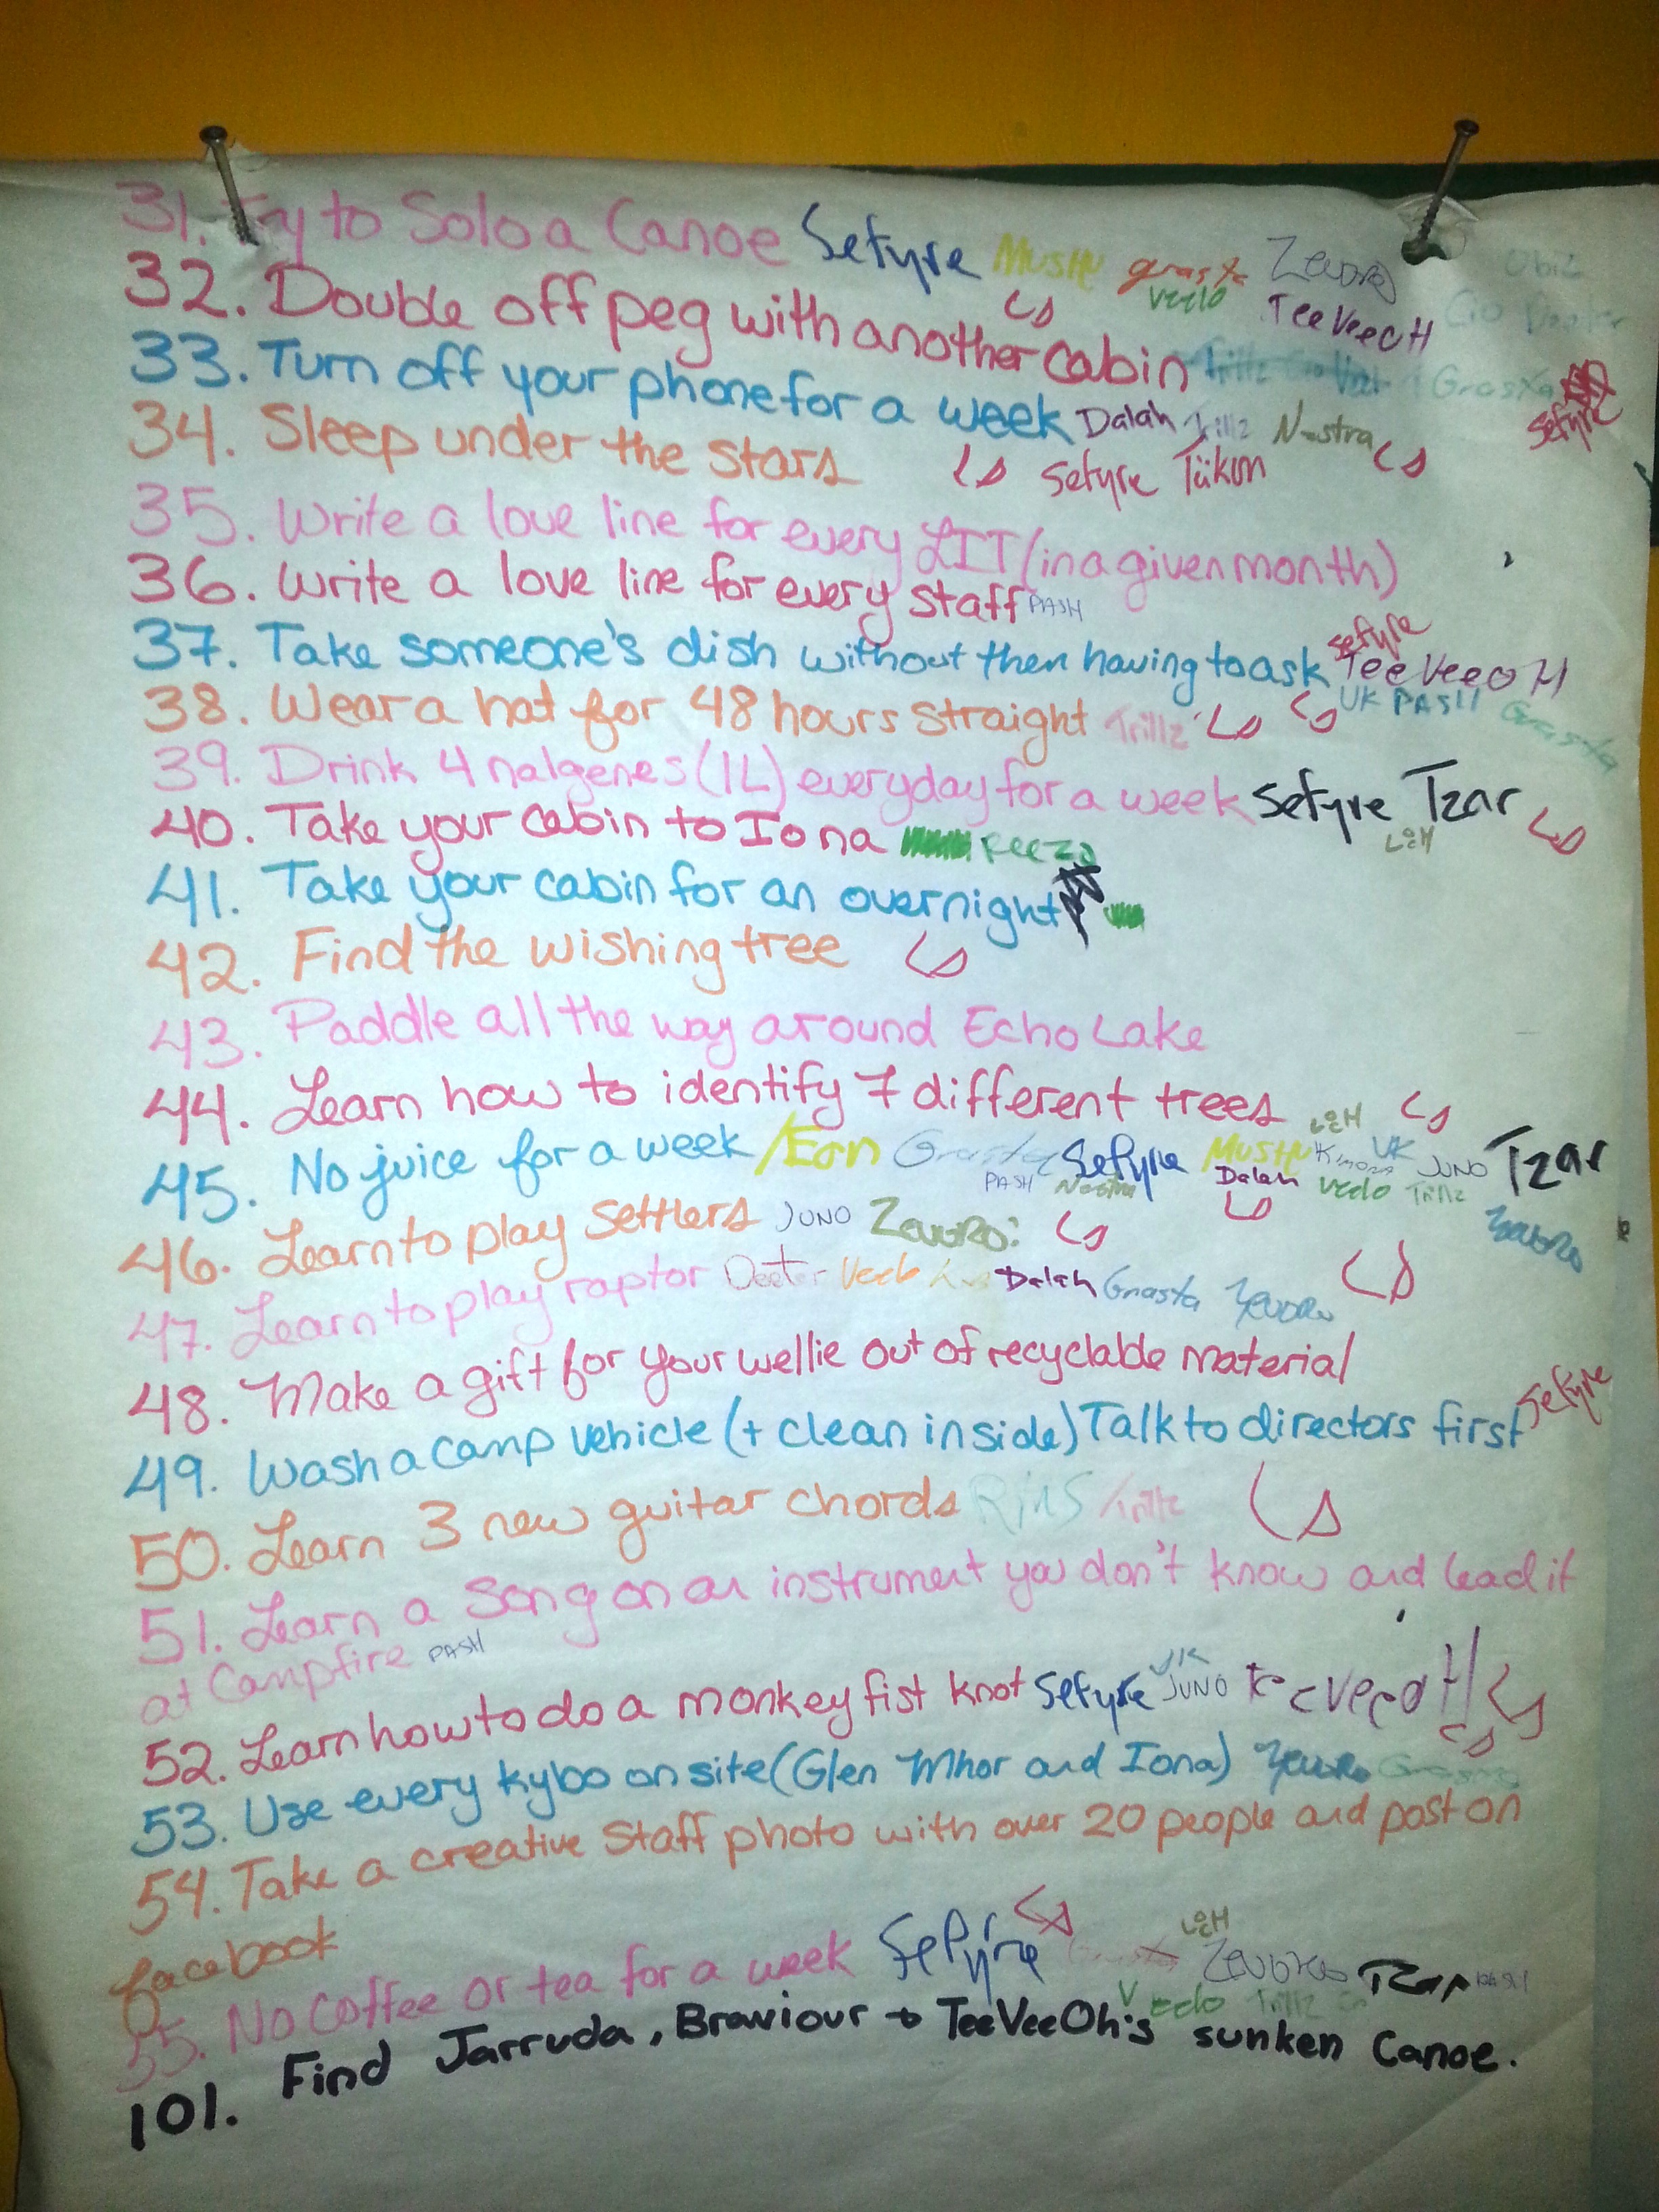 31. Try to Solo a Canoe Sefyre Mushu grasta Zevoro Obiz
Veelo TeeVeeOH
32. Double off peg with another cabin Grasta
33. Turn off your phone for a week Dalah Trillz Nostra Sefyre
34. Sleep under the stars Sefyre Tükon
35. Write a love line for every LIT (in a given month)
36. Write a love line for every staff PASH
37. Take someone's dish without them having to ask Sefyre TeeVeeOH
UK PASH Grasta
38. Wear a hat for 48 hours straight Trillz
39. Drink 4 nalgenes (1L) everyday for a week Sefyre Tzar
40. Take your cabin to Iona Feezo
41. Take your cabin for an overnight
42. Find the wishing tree
43. Paddle all the way around Echo Lake
44. Learn how to identify 7 different trees
45. No juice for a week / Eon Grasta Sefyre Mushu Kimona UK JUNO Tzar
PASH Nostra Dalah Veelo Trillz
46. Learn to play Settlers JUNO Zevoro
47. Learn to play raptor Deeter Veelo Dalah Grasta Zevoro
48. Make a gift for your wellie out of recyclable material
49. Wash a camp vehicle (+ clean inside) Talk to directors first Sefyre
50. Learn 3 new guitar chords Trillz
51. Learn a song on an instrument you don't know and lead it
at Campfire PASH
52. Learn how to do a monkey fist knot Sefyre UK JUNO TeeVeeOH
53. Use every kybo on site (Glen Mhor and Iona) Zevoro
54. Take a creative staff photo with over 20 people and post on
facebook
55. No coffee or tea for a week Sefyre Tzar PASH
Veelo Trillz
101. Find Jarruda, Braviour + TeeVeeOh's sunken Canoe.